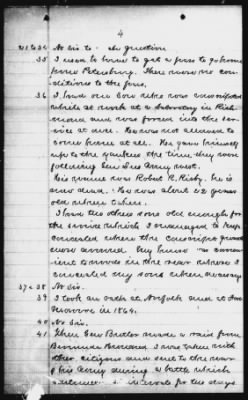 4
31 to 34 No Sir to - the question
35 I used to have to get a pass to go home
from Petersburg. There were no con-
ditions to the pass.
36 I had one son who was conscripted
while at work at a in Rich-
mond and was forced into the ser-
vice at once. He was not allowed to
come home at all. He gave himself
up to the Yankees the time they were
following Gen Lees Army out.
His name was Robert R. he is
now dead. He was about 42 years
old when taken.
I had two others sons old enough for
the service which I managed to keep
concealed when the conscript guard
were around. My house was conven-
ient to woods in the rear where I
concealed my sons when necessary
37 & 38 No Sir.
39 I took an oath at Norfolk and at Fort
Monroe in 1864.
40 No Sir.
41 When Gen Butler made a raid from
Bermuda Hundred I was taken with
other citizens and sent to the rear
of his Army during a battle which
in woods for two days.